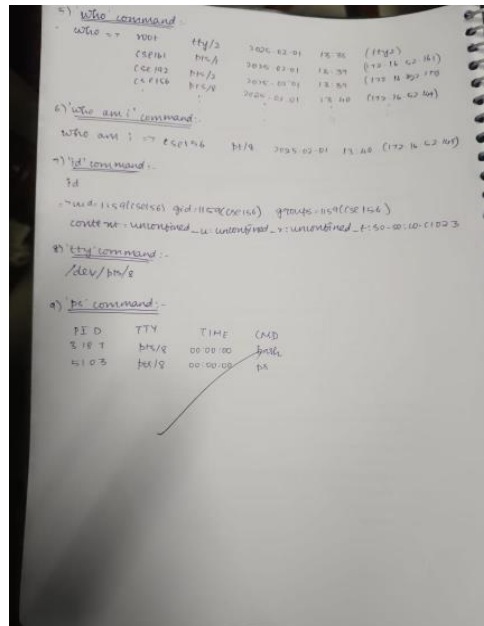 5) 'who' command :-
who => root tty/2 2025-02-01 13:35 (tty2)
cse161 pts/1 2025-02-01 13:37 (172.16.52.161)
cse192 pts/3 2025-02-01 13:39
cse156 pts/8 2025-02-01 13:40
6) 'who am i' command:-
who am i => cse156 pts/8 2025-02-01 13:40
7) 'id' command :-
id
=> uid=1159(cse156) gid=1159(cse156) groups=1159(cse156)
context=unconfined_u:unconfined_r:unconfined_t:s0-s0:c0.c1023
8) 'tty' command :-
/dev/pts/8
9) 'ps' command:-
PID TTY TIME CMD
pts/8 00:00:00 bash
5103 pts/8 00:00:00 ps